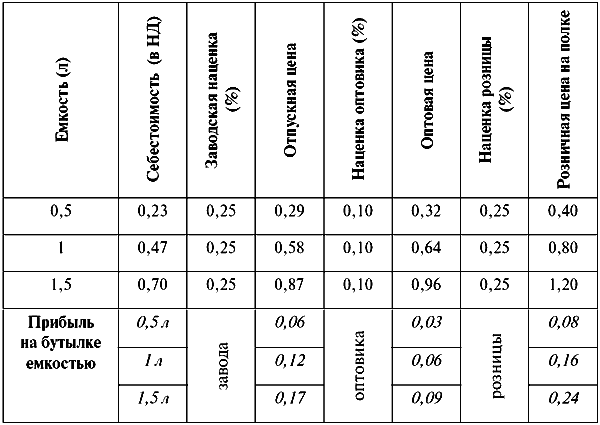 Емкость (л) Себестоимость (в НД) Заводская наценка (%) Отпускная цена Наценка оптовика (%) Оптовая цена Наценка розницы (%) Розничная цена на полке
0,5 0,23 0,25 0,29 0,10 0,32 0,25 0,40
1 0,47 0,25 0,58 0,10 0,64 0,25 0,80
1,5 0,70 0,25 0,87 0,10 0,96 0,25 1,20
Прибыль на бутылке емкостью
0,5 л завода 0,06 оптовика 0,03 розницы 0,08
1 л 0,12 0,06 0,16
1,5 л 0,17 0,09 0,24